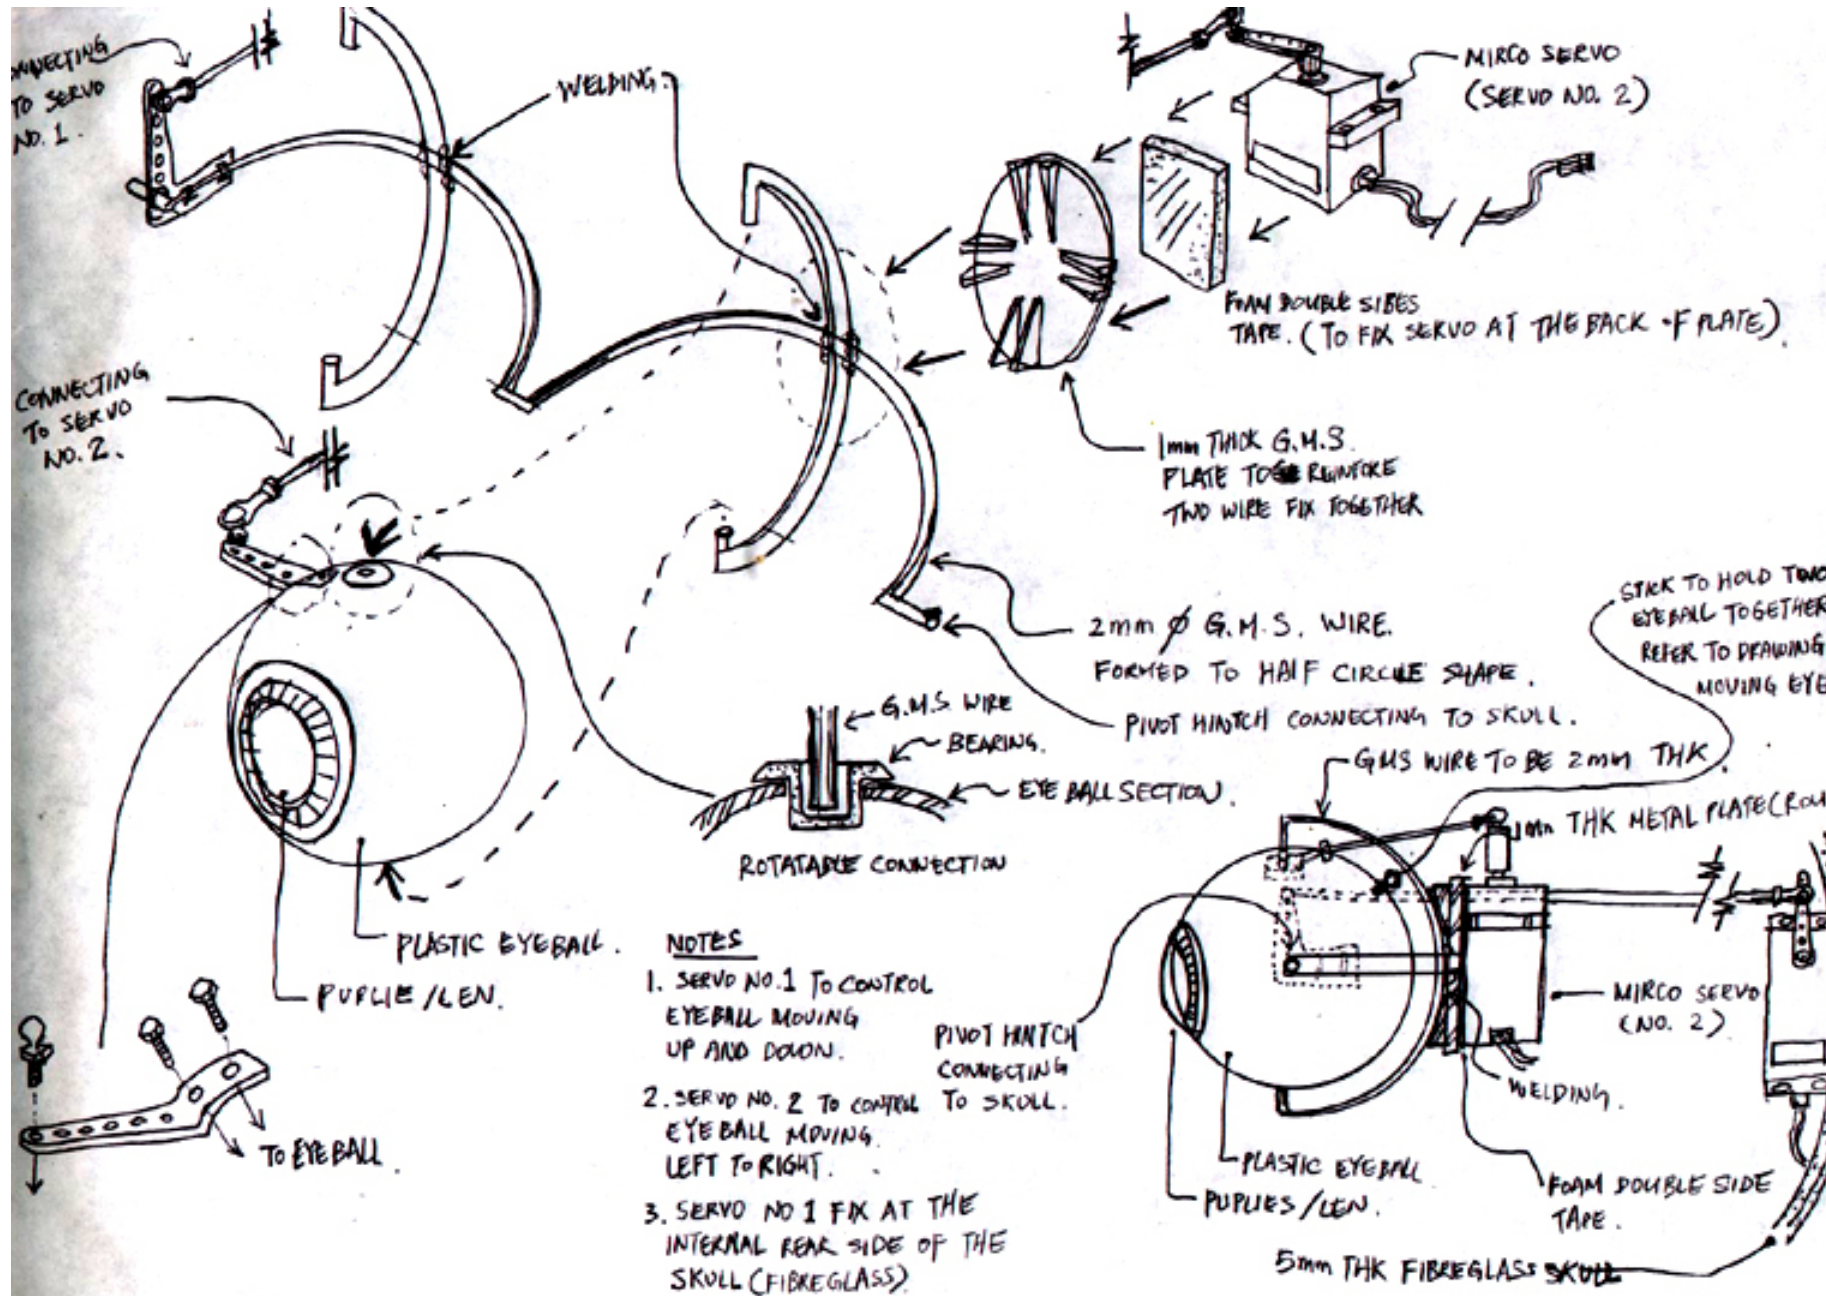 CONNECTING
TO SERVO
NO. 1.
WELDING.
MIRCO SERVO
(SERVO NO. 2)
FOAM DOUBLE SIDES
TAPE. (TO FIX SERVO AT THE BACK OF PLATE).
CONNECTING
TO SERVO
NO. 2.
1mm THICK G.M.S.
PLATE TO REINFORE
TWO WIRE FIX TOGETHER
2mm Ø G.M.S. WIRE.
FORMED TO HALF CIRCLE SHAPE.
PIVOT HINTCH CONNECTING TO SKULL.
STICK TO HOLD TWO
EYEBALL TOGETHER
REFER TO DRAWING
MOVING EYE
G.M.S. WIRE
BEARING.
EYE BALL SECTION.
ROTATABLE CONNECTION
GMS WIRE TO BE 2mm THK.
1mm THK METAL PLATE (ROU
PLASTIC EYEBALL.
PUPLIE/LEN.
TO EYEBALL.
NOTES
1. SERVO NO.1 TO CONTROL
EYEBALL MOVING
UP AND DOWN.
2. SERVO NO. 2 TO CONTROL
EYEBALL MOVING.
LEFT TO RIGHT.
3. SERVO NO 1 FIX AT THE
INTERNAL REAR SIDE OF THE
SKULL (FIBREGLASS)
PIVOT HINTCH
CONNECTING
TO SKULL.
MIRCO SERVO
(NO. 2)
WELDING.
PLASTIC EYEBALL
PUPLIES/LEN.
FOAM DOUBLE SIDE
TAPE.
5mm THK FIBREGLASS SKULL